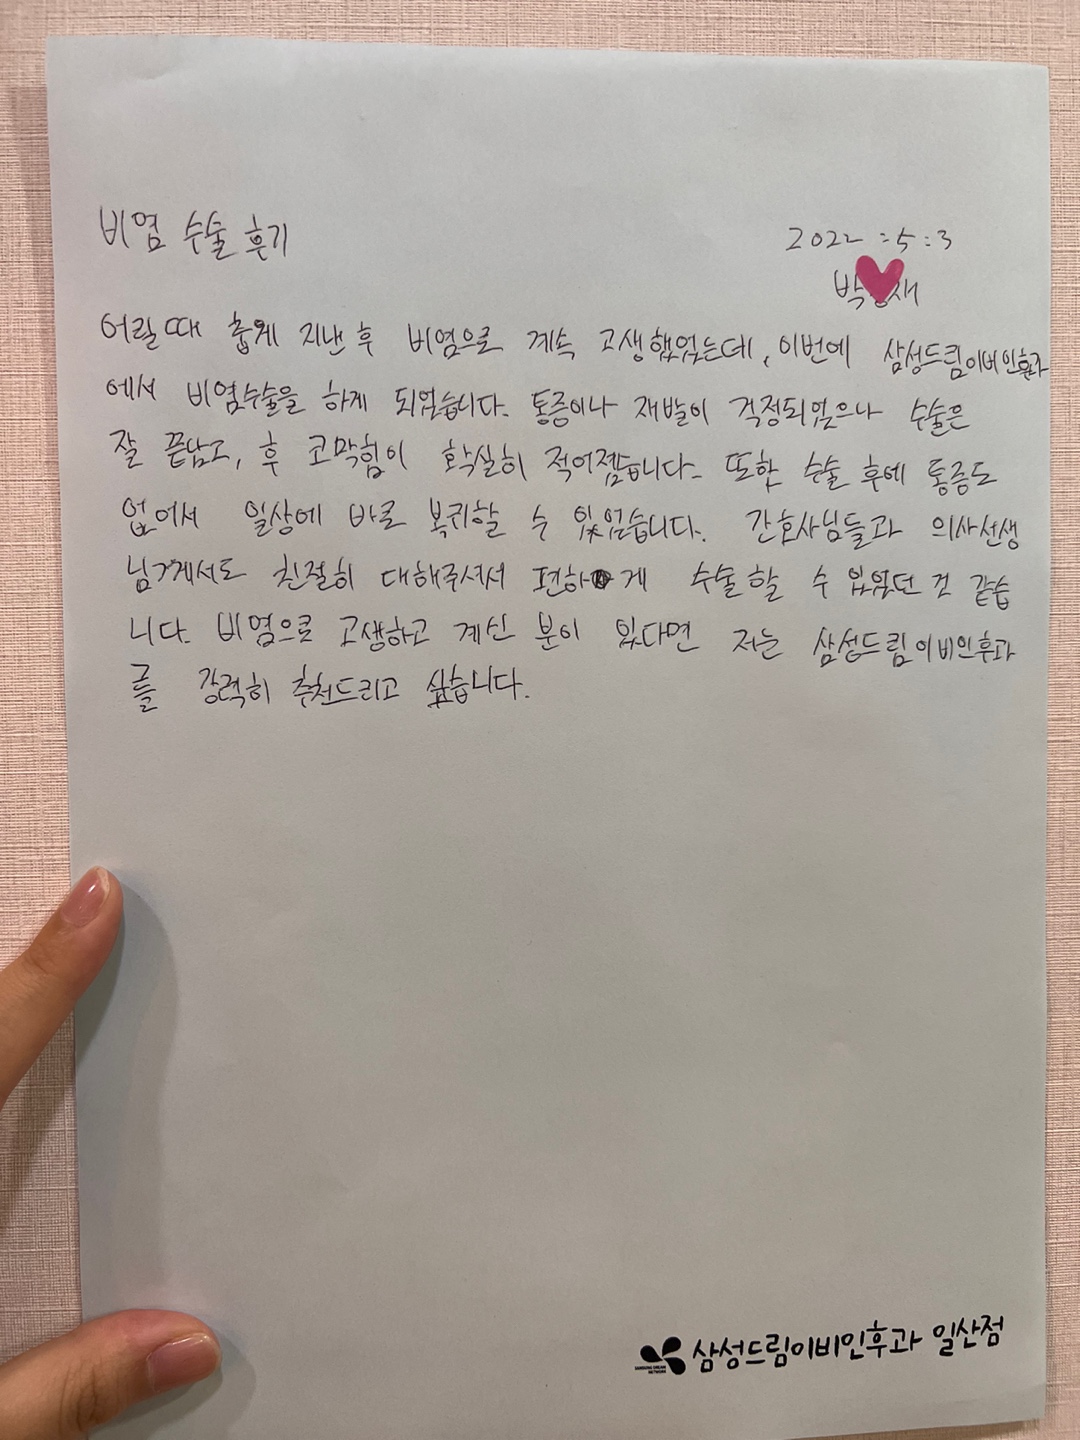 비염 수술 후기
2022 : 5 : 3
박 재
어릴 때 춥게 지낸 후 비염으로 계속 고생했었는데, 이번에 삼성드림이비인후과
에서 비염수술을 하게 되었습니다. 통증이나 재발이 걱정되었으나 수술은
잘 끝났고, 후 코막힘이 확실히 적어졌습니다. 또한 수술 후에 통증도
없어서 일상에 바로 복귀할 수 있었습니다. 간호사님들과 의사선생
님께서도 친절히 대해주셔서 편하게 수술할 수 있었던 것 같습
니다. 비염으로 고생하고 계신 분이 있다면 저는 삼성드림이비인후과
를 강력히 추천드리고 싶습니다.
삼성드림이비인후과 일산점
SAMSUNG DREAM
NETWORK